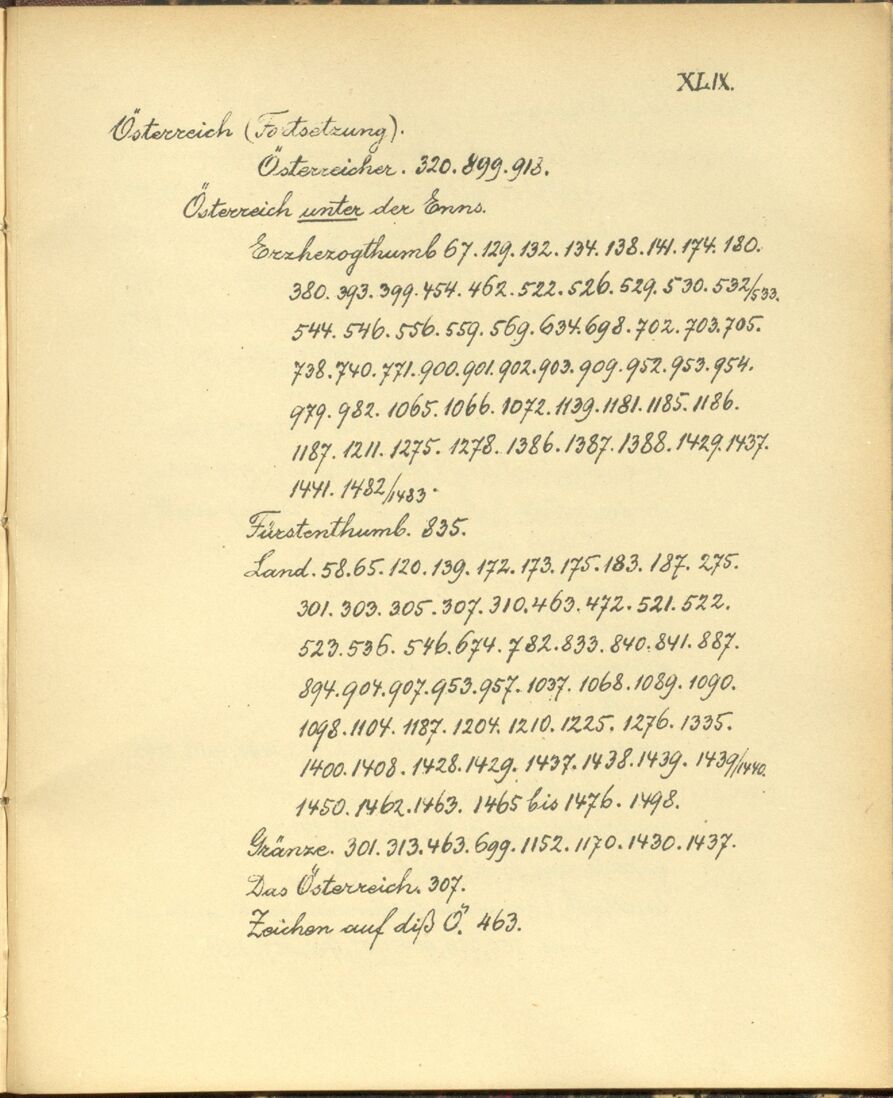 XLIX.
Österreich (Fortsetzung).
Österreicher. 320. 899. 918.
Österreich unter der Enns.
Erzhezogthumb 67. 129. 132. 134. 138. 141. 174. 180.
380. 393. 399. 454. 462. 522. 526. 529. 530. 532/533.
544. 546. 556. 559. 569. 634. 698. 702. 703. 705.
738. 740. 771. 900. 901. 902. 903. 909. 952. 953. 954.
979. 982. 1065. 1066. 1072. 1139. 1181. 1185. 1186.
1187. 1211. 1275. 1278. 1386. 1387. 1388. 1429. 1437.
1441. 1482/1483.
Fürstenthumb. 835.
Land. 58. 65. 120. 139. 172. 173. 175. 183. 187. 275.
301. 303. 305. 307. 310. 463. 472. 521. 522.
523. 536. 546. 674. 782. 833. 840. 841. 887.
894. 904. 907. 953. 957. 1037. 1068. 1089. 1090.
1098. 1104. 1187. 1204. 1210. 1225. 1276. 1335.
1400. 1408. 1428. 1429. 1437. 1438. 1439. 1439/1440.
1450. 1462. 1463. 1465 bis 1476. 1498.
Gränze. 301. 313. 463. 699. 1152. 1170. 1430. 1437.
Das Österreich. 307.
Zeichen auf diß Ö. 463.